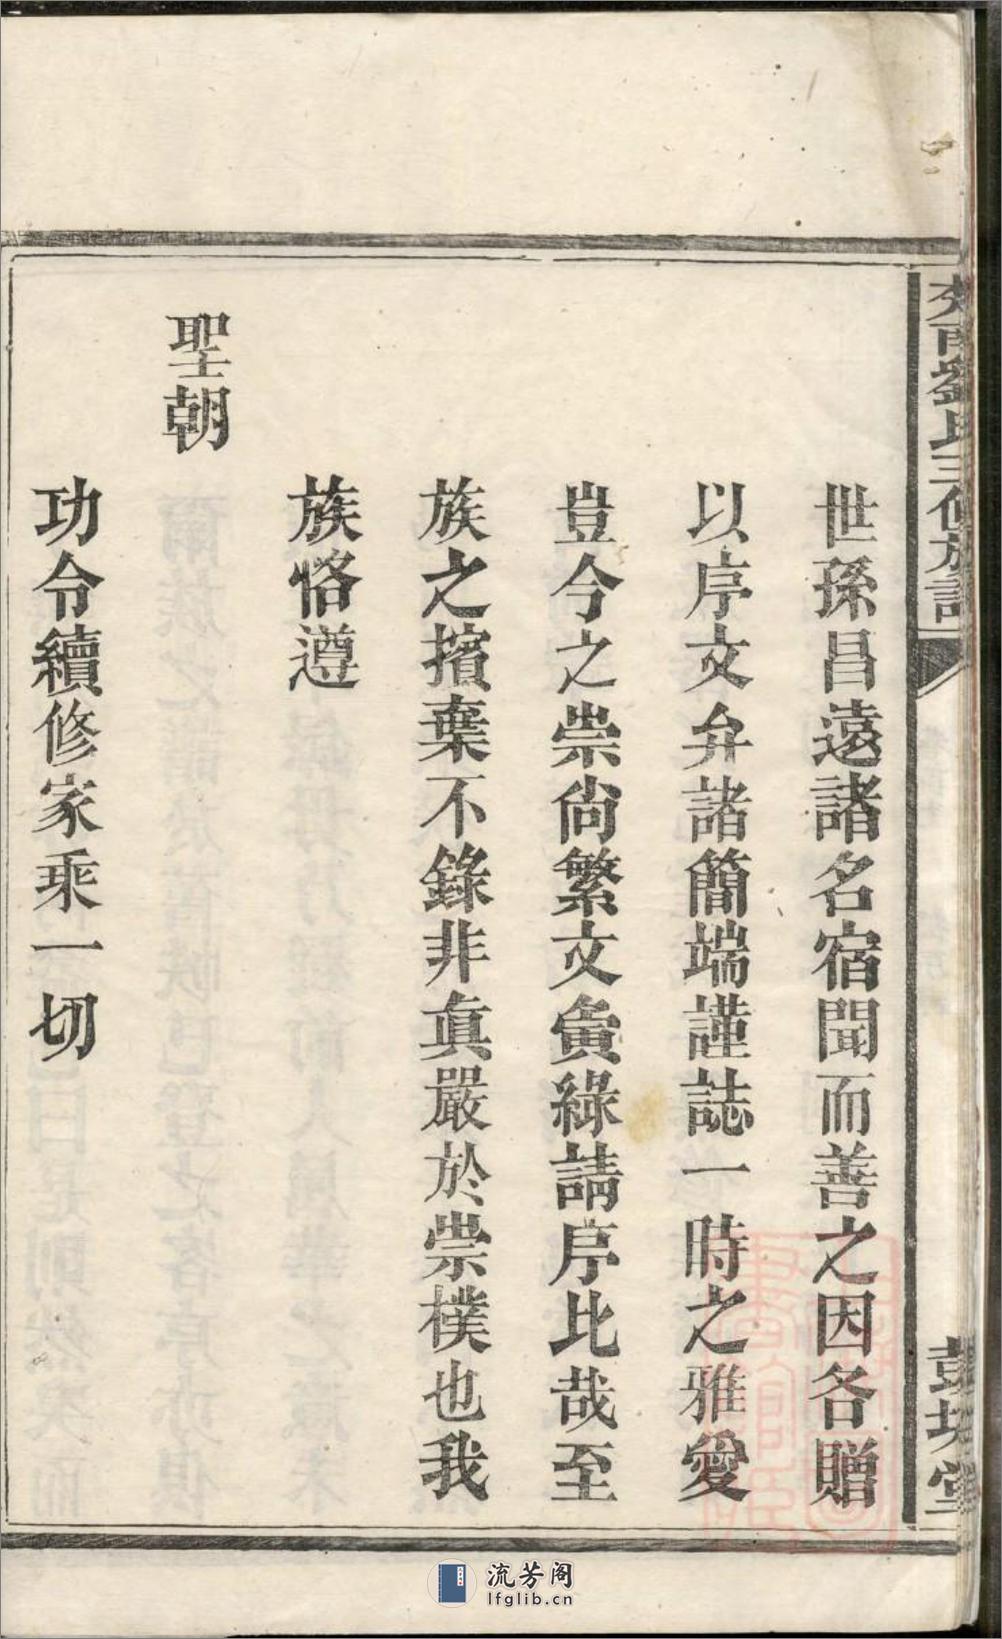 世孫昌遠諸名宿聞而善之因各贈
以序文弁諸簡端謹誌一時之雅愛
豈今之崇尚繁文夤緣請序比哉至
族之擯棄不錄非眞嚴於崇樸也我
族恪遵
聖朝
功令續修家乘一切
劉氏三修族譜
彭城堂
流芳阁
lfglib.cn